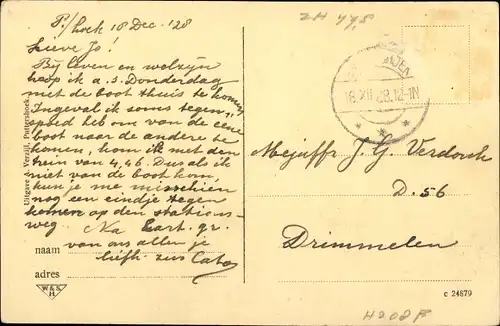 P./hoek 18 Dec. '28
Lieve Jo!
Bij leven en welzijn
hoop ik a.s. Donderdag
met de boot thuis te komen
Ingeval ik soms tegen-
spoed heb om van de eene
boot naar de andere te
komen, kom ik met den
trein van 4,46. Dus als ik
niet van de boot kom,
kun je me misschien
nog een eindje tegen
komen op den stations-
weg. Na hart. gr.
van ons allen je
liefh. zus Cato
naam
adres
Uitgave J. Verzijl, Puttershoek
W&S
H
ZH 445
18.XII.28.12-1N
Mejuffr J. G. Verdorch
D. 56
Drimmelen
c 24879
H208F